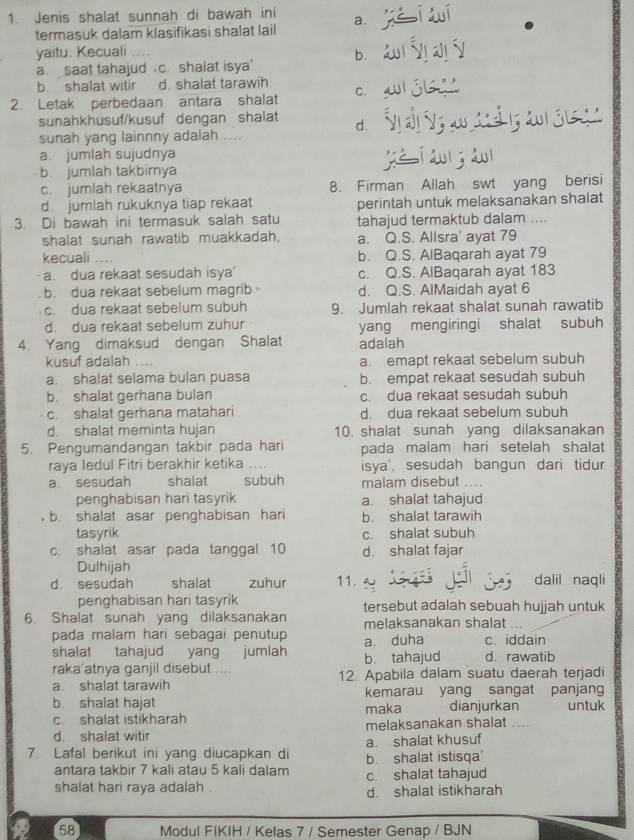 1. Jenis shalat sunnah di bawah ini
termasuk dalam klasifikasi shalat lail
yaitu. Kecuali ....
a. saat tahajud c. shalat isya'
b. shalat witir d. shalat tarawih
2. Letak perbedaan antara shalat
sunahkhusuf/kusuf dengan shalat
sunah yang lainnny adalah ....
a. jumlah sujudnya
b. jumlah takbirnya
c. jumlah rekaatnya
d. jumlah rukuknya tiap rekaat
3. Di bawah ini termasuk salah satu
shalat sunah rawatib muakkadah,
kecuali ....
a. dua rekaat sesudah isya'
b. dua rekaat sebelum magrib
c. dua rekaat sebelum subuh
d. dua rekaat sebelum zuhur
4. Yang dimaksud dengan Shalat
kusuf adalah ....
a. shalat selama bulan puasa
b. shalat gerhana bulan
c. shalat gerhana matahari
d. shalat meminta hujan
5. Pengumandangan takbir pada hari
raya Iedul Fitri berakhir ketika ....
a. sesudah shalat subuh
penghabisan hari tasyrik
b. shalat asar penghabisan hari
tasyrik
c. shalat asar pada tanggal 10
Dulhijah
d. sesudah shalat zuhur
penghabisan hari tasyrik
6. Shalat sunah yang dilaksanakan
pada malam hari sebagai penutup
shalat tahajud yang jumlah
raka'atnya ganjil disebut ....
a. shalat tarawih
b. shalat hajat
c. shalat istikharah
d. shalat witir
7. Lafal berikut ini yang diucapkan di
antara takbir 7 kali atau 5 kali dalam
shalat hari raya adalah .
a. اللهُ أَكْبَرُ
b. لَا إِلَهَ إِلَّا اللهُ
c. سُبْحَانَ اللهِ
d. سُبْحَانَ اللهِ وَالْحَمْدُ لِلهِ وَلَا إِلَهَ إِلَّا
اللهُ وَ اللهُ أَكْبَرُ
8. Firman Allah swt yang berisi
perintah untuk melaksanakan shalat
tahajud termaktub dalam ....
a. Q.S. AlIsra' ayat 79
b. Q.S. AlBaqarah ayat 79
c. Q.S. AlBaqarah ayat 183
d. Q.S. AlMaidah ayat 6
9. Jumlah rekaat shalat sunah rawatib
yang mengiringi shalat subuh
adalah
a. emapt rekaat sebelum subuh
b. empat rekaat sesudah subuh
c. dua rekaat sesudah subuh
d. dua rekaat sebelum subuh
10. shalat sunah yang dilaksanakan
pada malam hari setelah shalat
isya', sesudah bangun dari tidur
malam disebut ....
a. shalat tahajud
b. shalat tarawih
c. shalat subuh
d. shalat fajar
11. وَمِنَ الَّيْلِ فَتَهَجَّدْ بِهِ dalil naqli
tersebut adalah sebuah hujjah untuk
melaksanakan shalat ...
a. duha c. iddain
b. tahajud d. rawatib
12. Apabila dalam suatu daerah terjadi
kemarau yang sangat panjang
maka dianjurkan untuk
melaksanakan shalat ....
a. shalat khusuf
b. shalat istisqa'
c. shalat tahajud
d. shalat istikharah
58 Modul FIKIH / Kelas 7 / Semester Genap / BJN